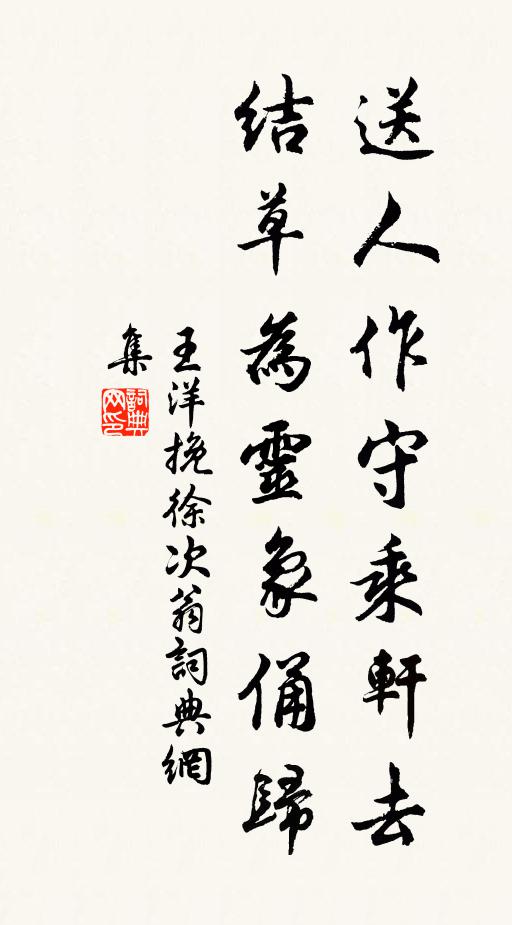 送人作守乘軒去
結草為靈象俑歸
王洋挽徐次翁詞典網
集
詞典網印